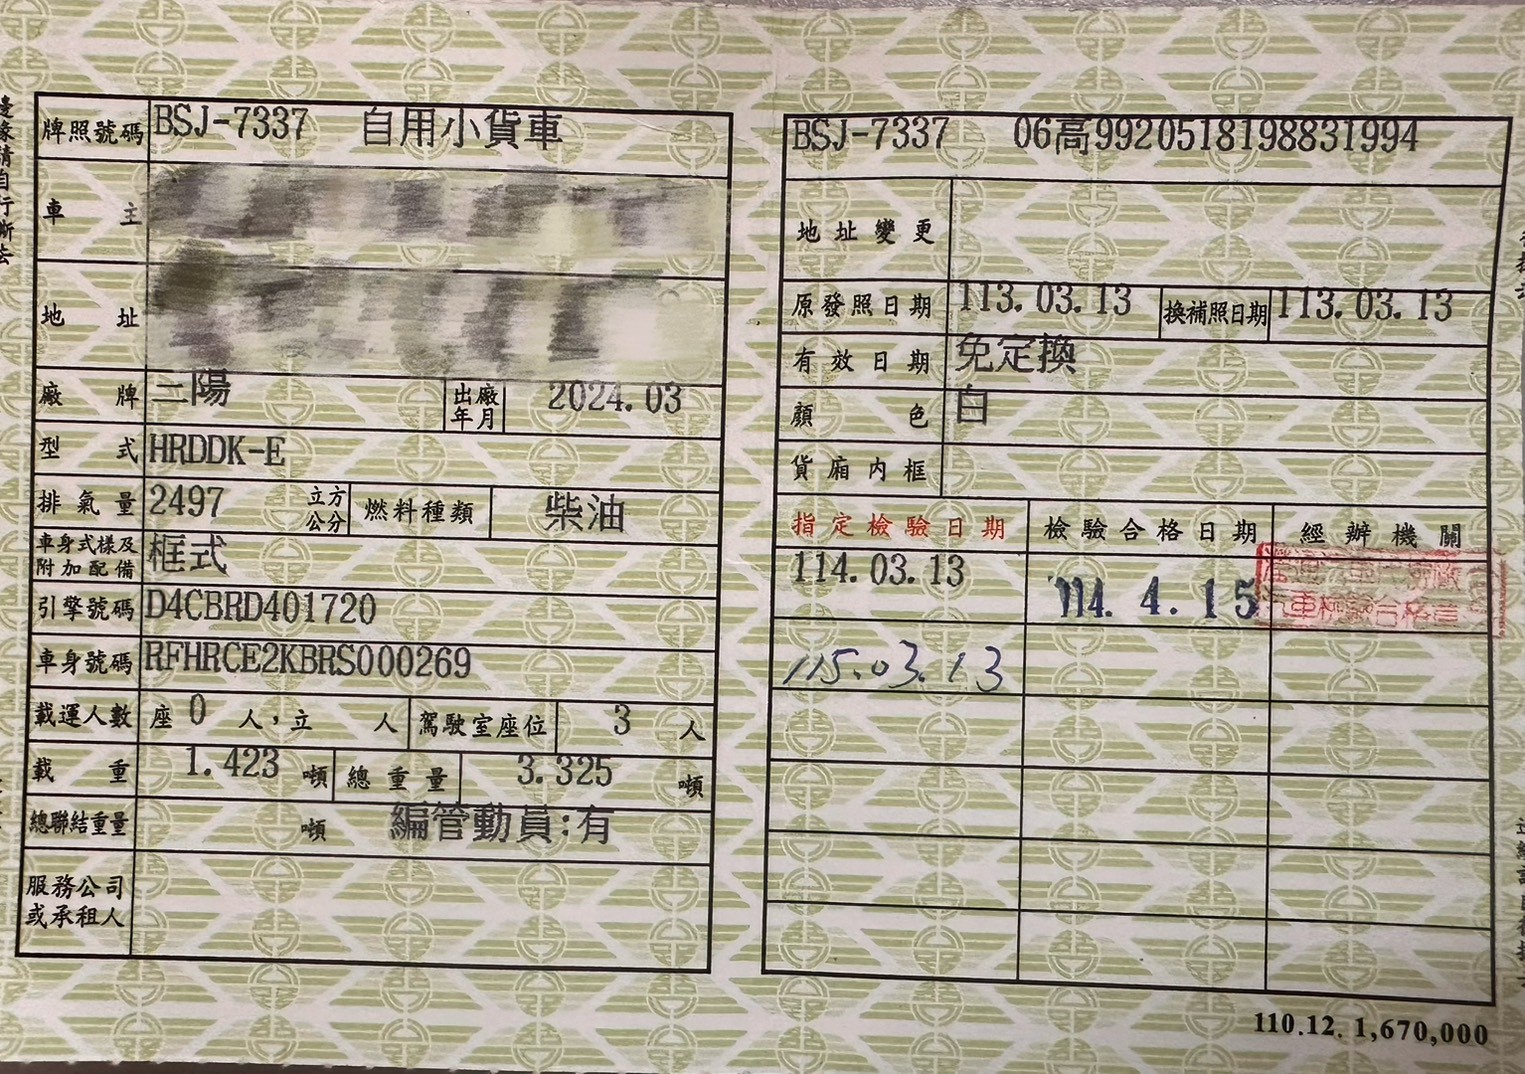 牌照號碼 BSJ-7337 自用小貨車
車主
地址
廠牌 三陽 出廠年月 2024.03
型式 HRDDK-E
排氣量 2497 立方公分 燃料種類 柴油
車身式樣及附加配備 框式
引擎號碼 D4CBRD401720
車身號碼 RFHRCE2KBRS000269
載運人數 座 0 人,立 人 駕駛室座位 3 人
載重 1.423 噸 總重量 3.325 噸
總聯結重量 噸 編管動員:有
服務公司或承租人
BSJ-7337 06高9920518198831994
地址變更
原發照日期 113.03.13 換補照日期 113.03.13
有效日期 免定換
顏色 白
貨廂內框
指定檢驗日期 檢驗合格日期 經辦機關
114.03.13 114.4.15
115.03.13
110.12. 1,670,000
邊緣請自行撕去